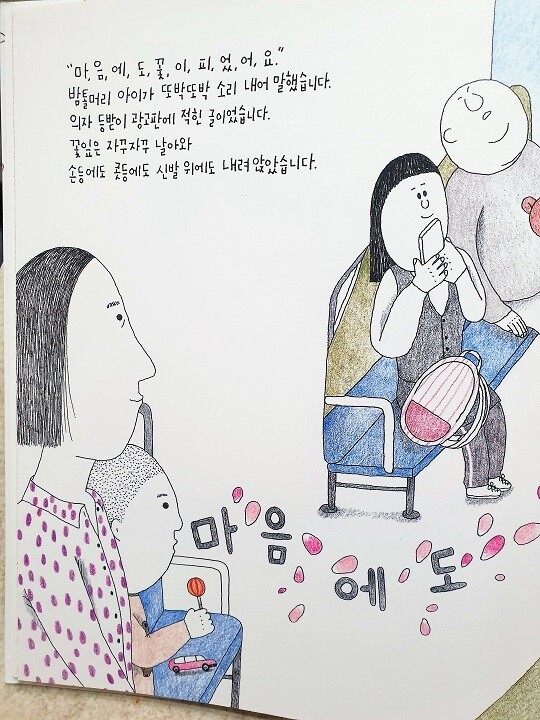 "마, 음, 에, 도, 꽃, 이, 피, 었, 어, 요."
밤톨머리 아이가 또박또박 소리 내어 말했습니다.
의자 등받이 광고판에 적힌 글이었습니다.
꽃잎은 자꾸자꾸 날아와
손등에도 콧등에도 신발 위에도 내려 앉았습니다.
마음에도